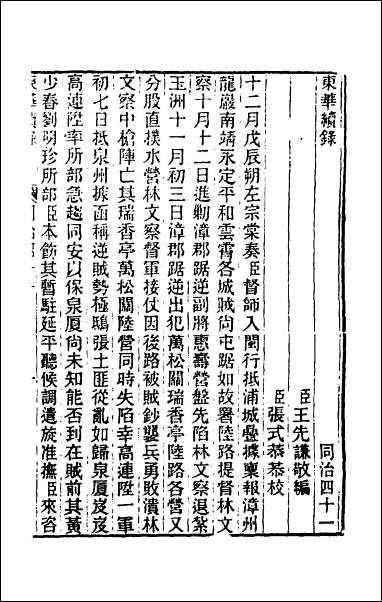 東華續錄
同治四十一
臣王先謙敬編
臣張式恭恭校
十二月戊辰朔左宗棠奏臣督師入閩行抵浦城疊據稟報漳州
龍巖南靖永定平和雲霄各城賊尙屯踞如故署陸路提督林文
察十月十二日進勦漳郡踞逆副將惠壽營盤先陷林文察退紮
玉洲十一月初三日漳郡踞逆出犯萬松關瑞香亭陸路各營又
分股直撲水營林文察督軍接仗因後路被賊鈔襲兵勇敗潰林
文察中槍陣亡其瑞香亭萬松關陸營同時失陷幸高連陞一軍
初七日抵泉州據函稱逆賊勢極鴟張土匪從亂如歸泉厦岌岌
高連陞率所部急趨同安以保泉厦尙未知能否到在賊前其黃
少春劉明珍所部臣本飭其暫駐延平聽候調遣旋准撫臣來咨